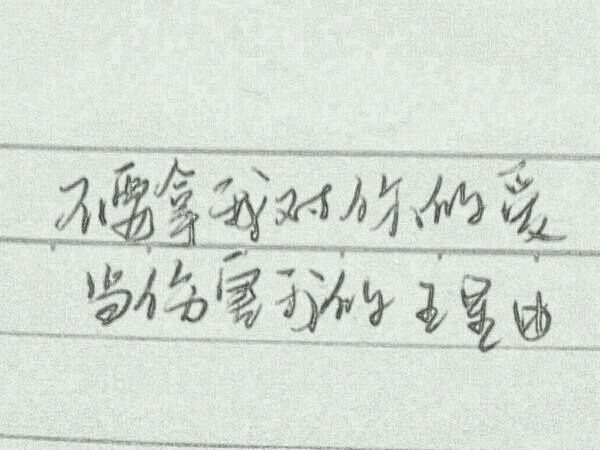 不要拿我对你的爱
当伤害我的理由